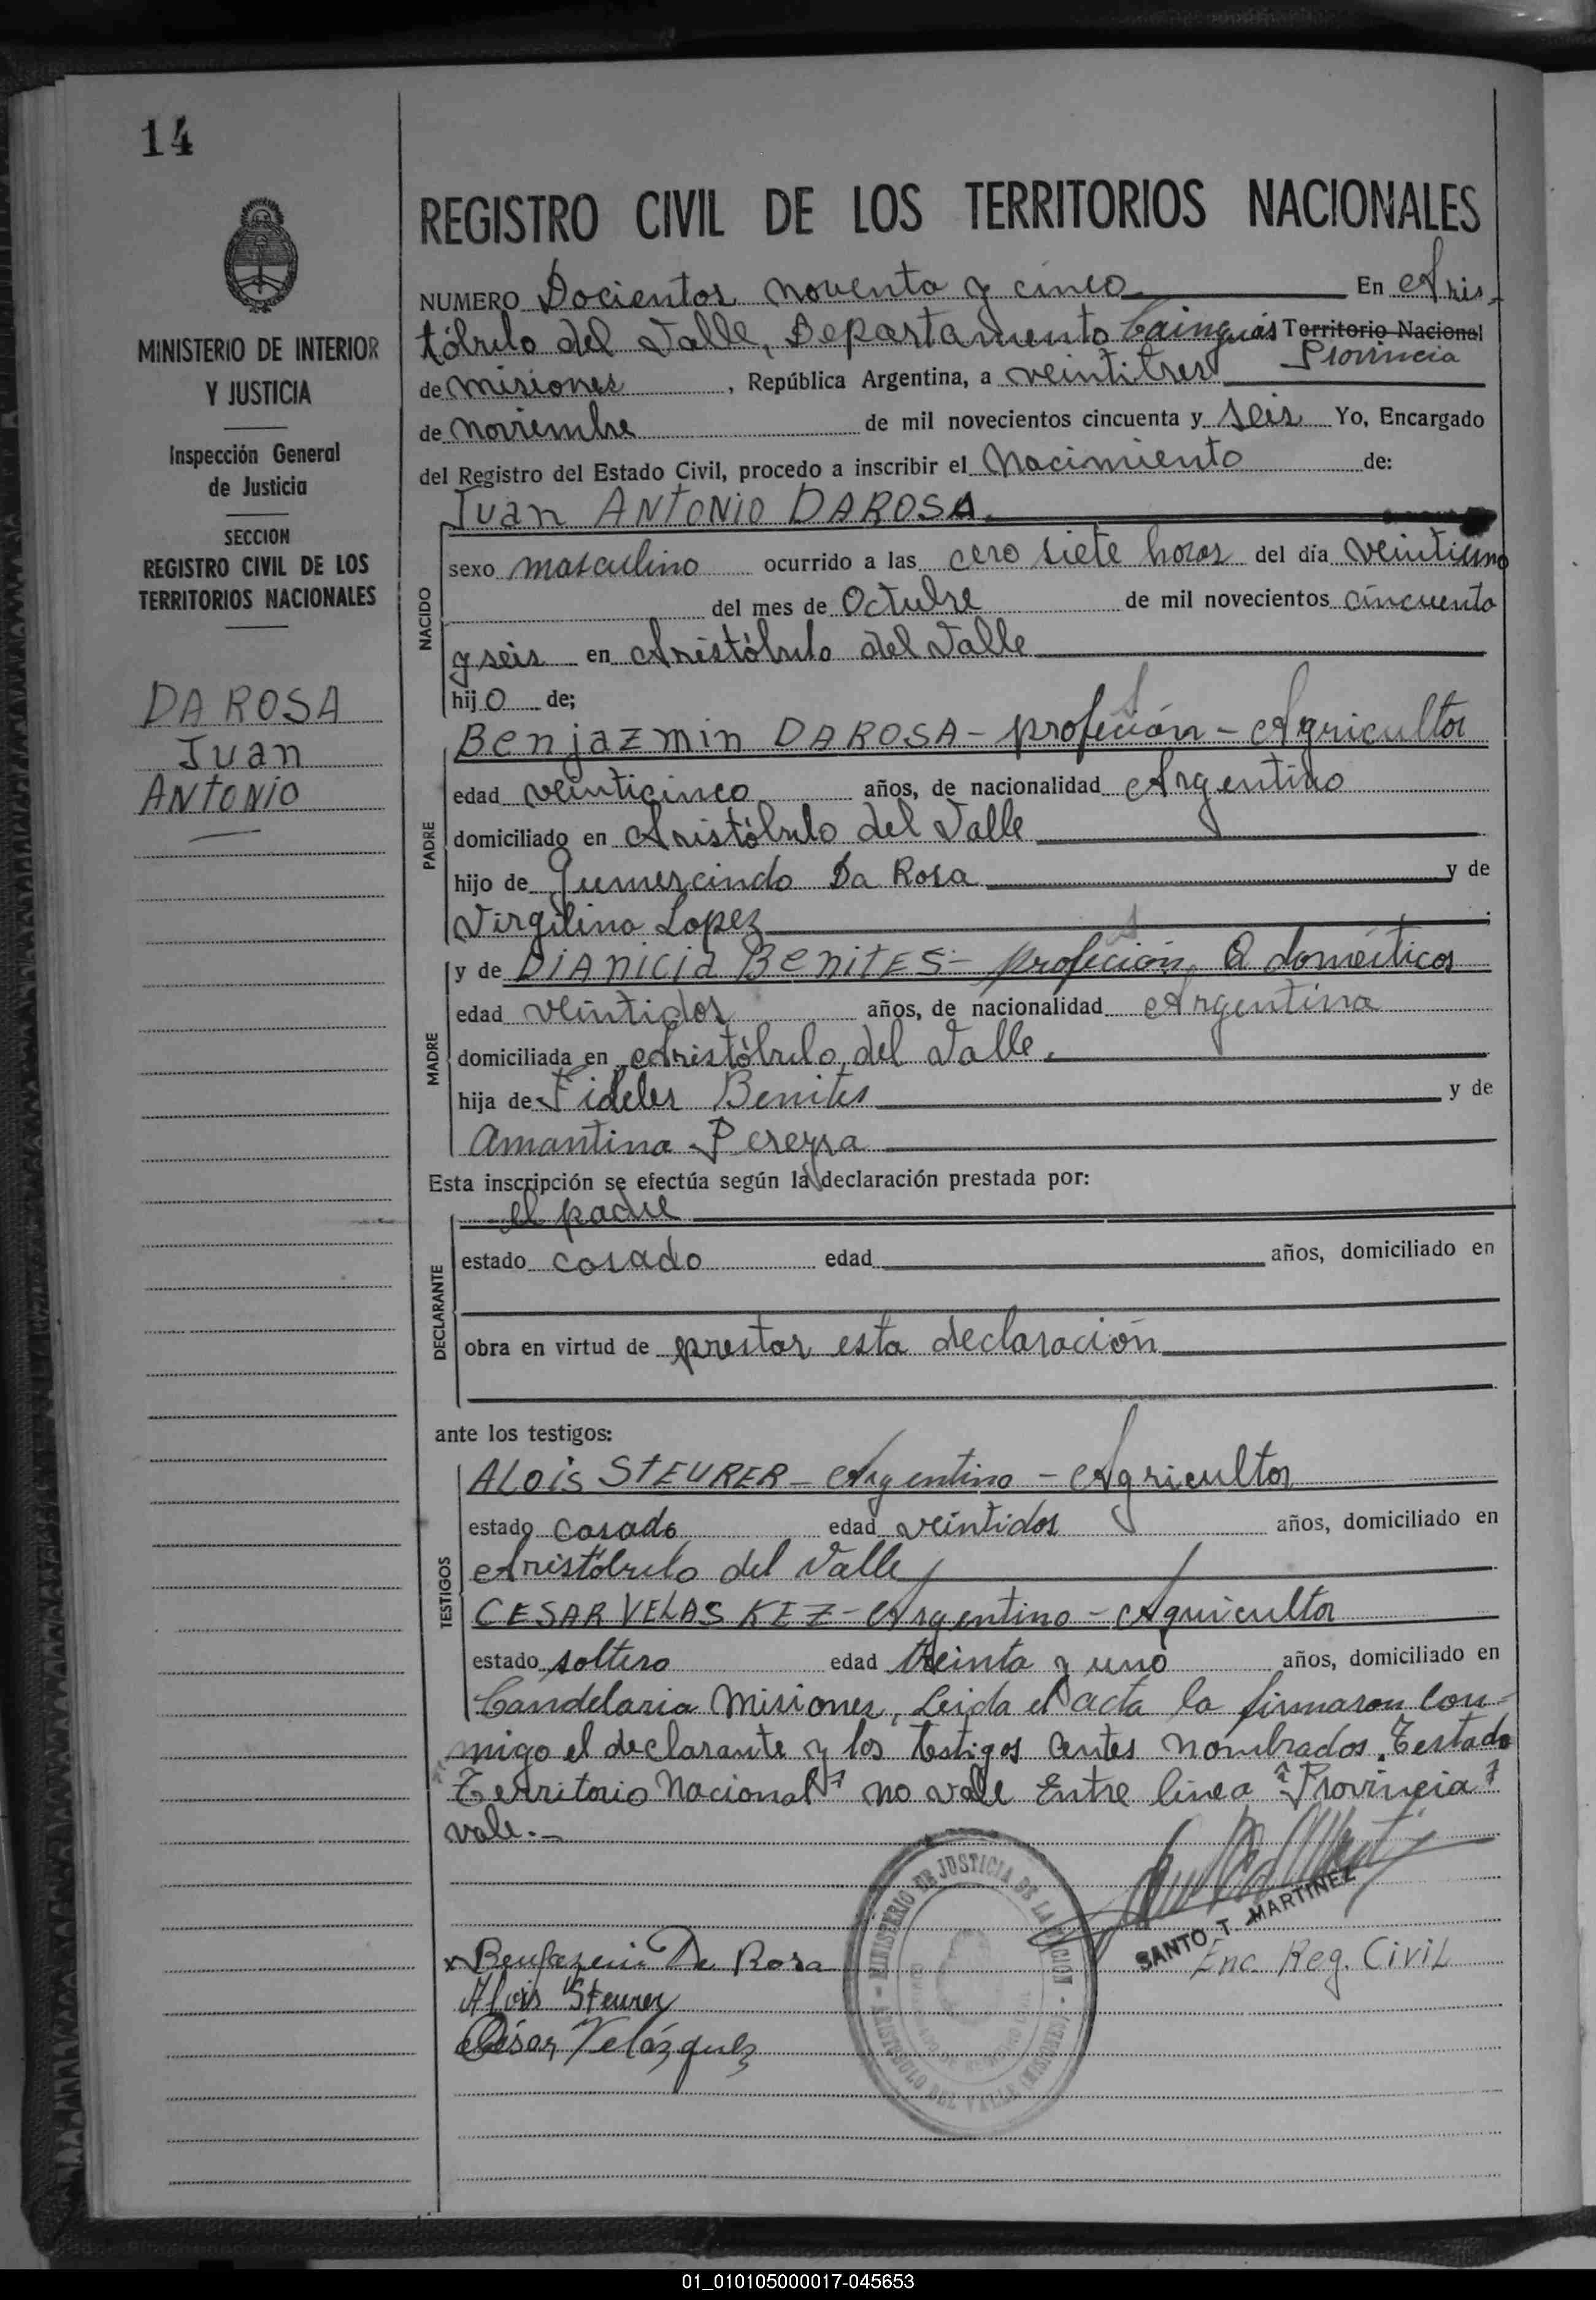 14
MINISTERIO DE INTERIOR
Y JUSTICIA
Inspección General
de Justicia
SECCION
REGISTRO CIVIL DE LOS
TERRITORIOS NACIONALES
DA ROSA
Juan
ANTONIO
REGISTRO CIVIL DE LOS TERRITORIOS NACIONALES
NUMERO Docientos noventa y cinco En Aris-
tóbulo del Valle, Departamento Cainguás Territorio Nacional
Provincia
de misiones, República Argentina, a veintitres
de noviembre de mil novecientos cincuenta y seis Yo, Encargado
del Registro del Estado Civil, procedo a inscribir el Nacimiento de:
Juan ANTONIO DAROSA.
NACIDO
sexo masculino ocurrido a las cero siete horas del día veintiuno
del mes de Octubre de mil novecientos cincuenta
y seis en Aristóbulo del Valle
hijo de;
PADRE
Benjazmin DAROSA - profeción - Agricultor
edad veinticinco años, de nacionalidad Argentino
domiciliado en Aristóbulo del Valle
hijo de Gumercindo Da Rosa y de
Virgilina Lopez
MADRE
y de DIANICIA BENITES - profeción, Q domésticos
edad veintidos años, de nacionalidad Argentina
domiciliada en Aristóbulo del Valle.
hija de Fideles Benites y de
Amantina Pereyra
Esta inscripción se efectúa según la declaración prestada por:
DECLARANTE
el padre
estado casado edad años, domiciliado en
obra en virtud de prestar esta declaración
ante los testigos:
TESTIGOS
ALOIS STEURER - Argentino - Agricultor
estado casado edad veintidos años, domiciliado en
Aristóbulo del Valle
CESAR VELASKEZ - Argentino - Agricultor
estado soltero edad treinta y uno años, domiciliado en
Candelaria Misiones, Leida el acta la firmaron con-
migo el declarante y los testigos antes nombrados. Testado
Territorio Nacional" no vale Entre linea "Provincia"
vale.-
MINISTERIO DE JUSTICIA DE LA NACION - ARISTOBULO DEL VALLE (MISIONES) -
SANTO T. MARTINEZ
Enc. Reg. Civil
x Benjazmin Da Rosa
Alois Steurer
César Velázquez
01_010105000017-045653